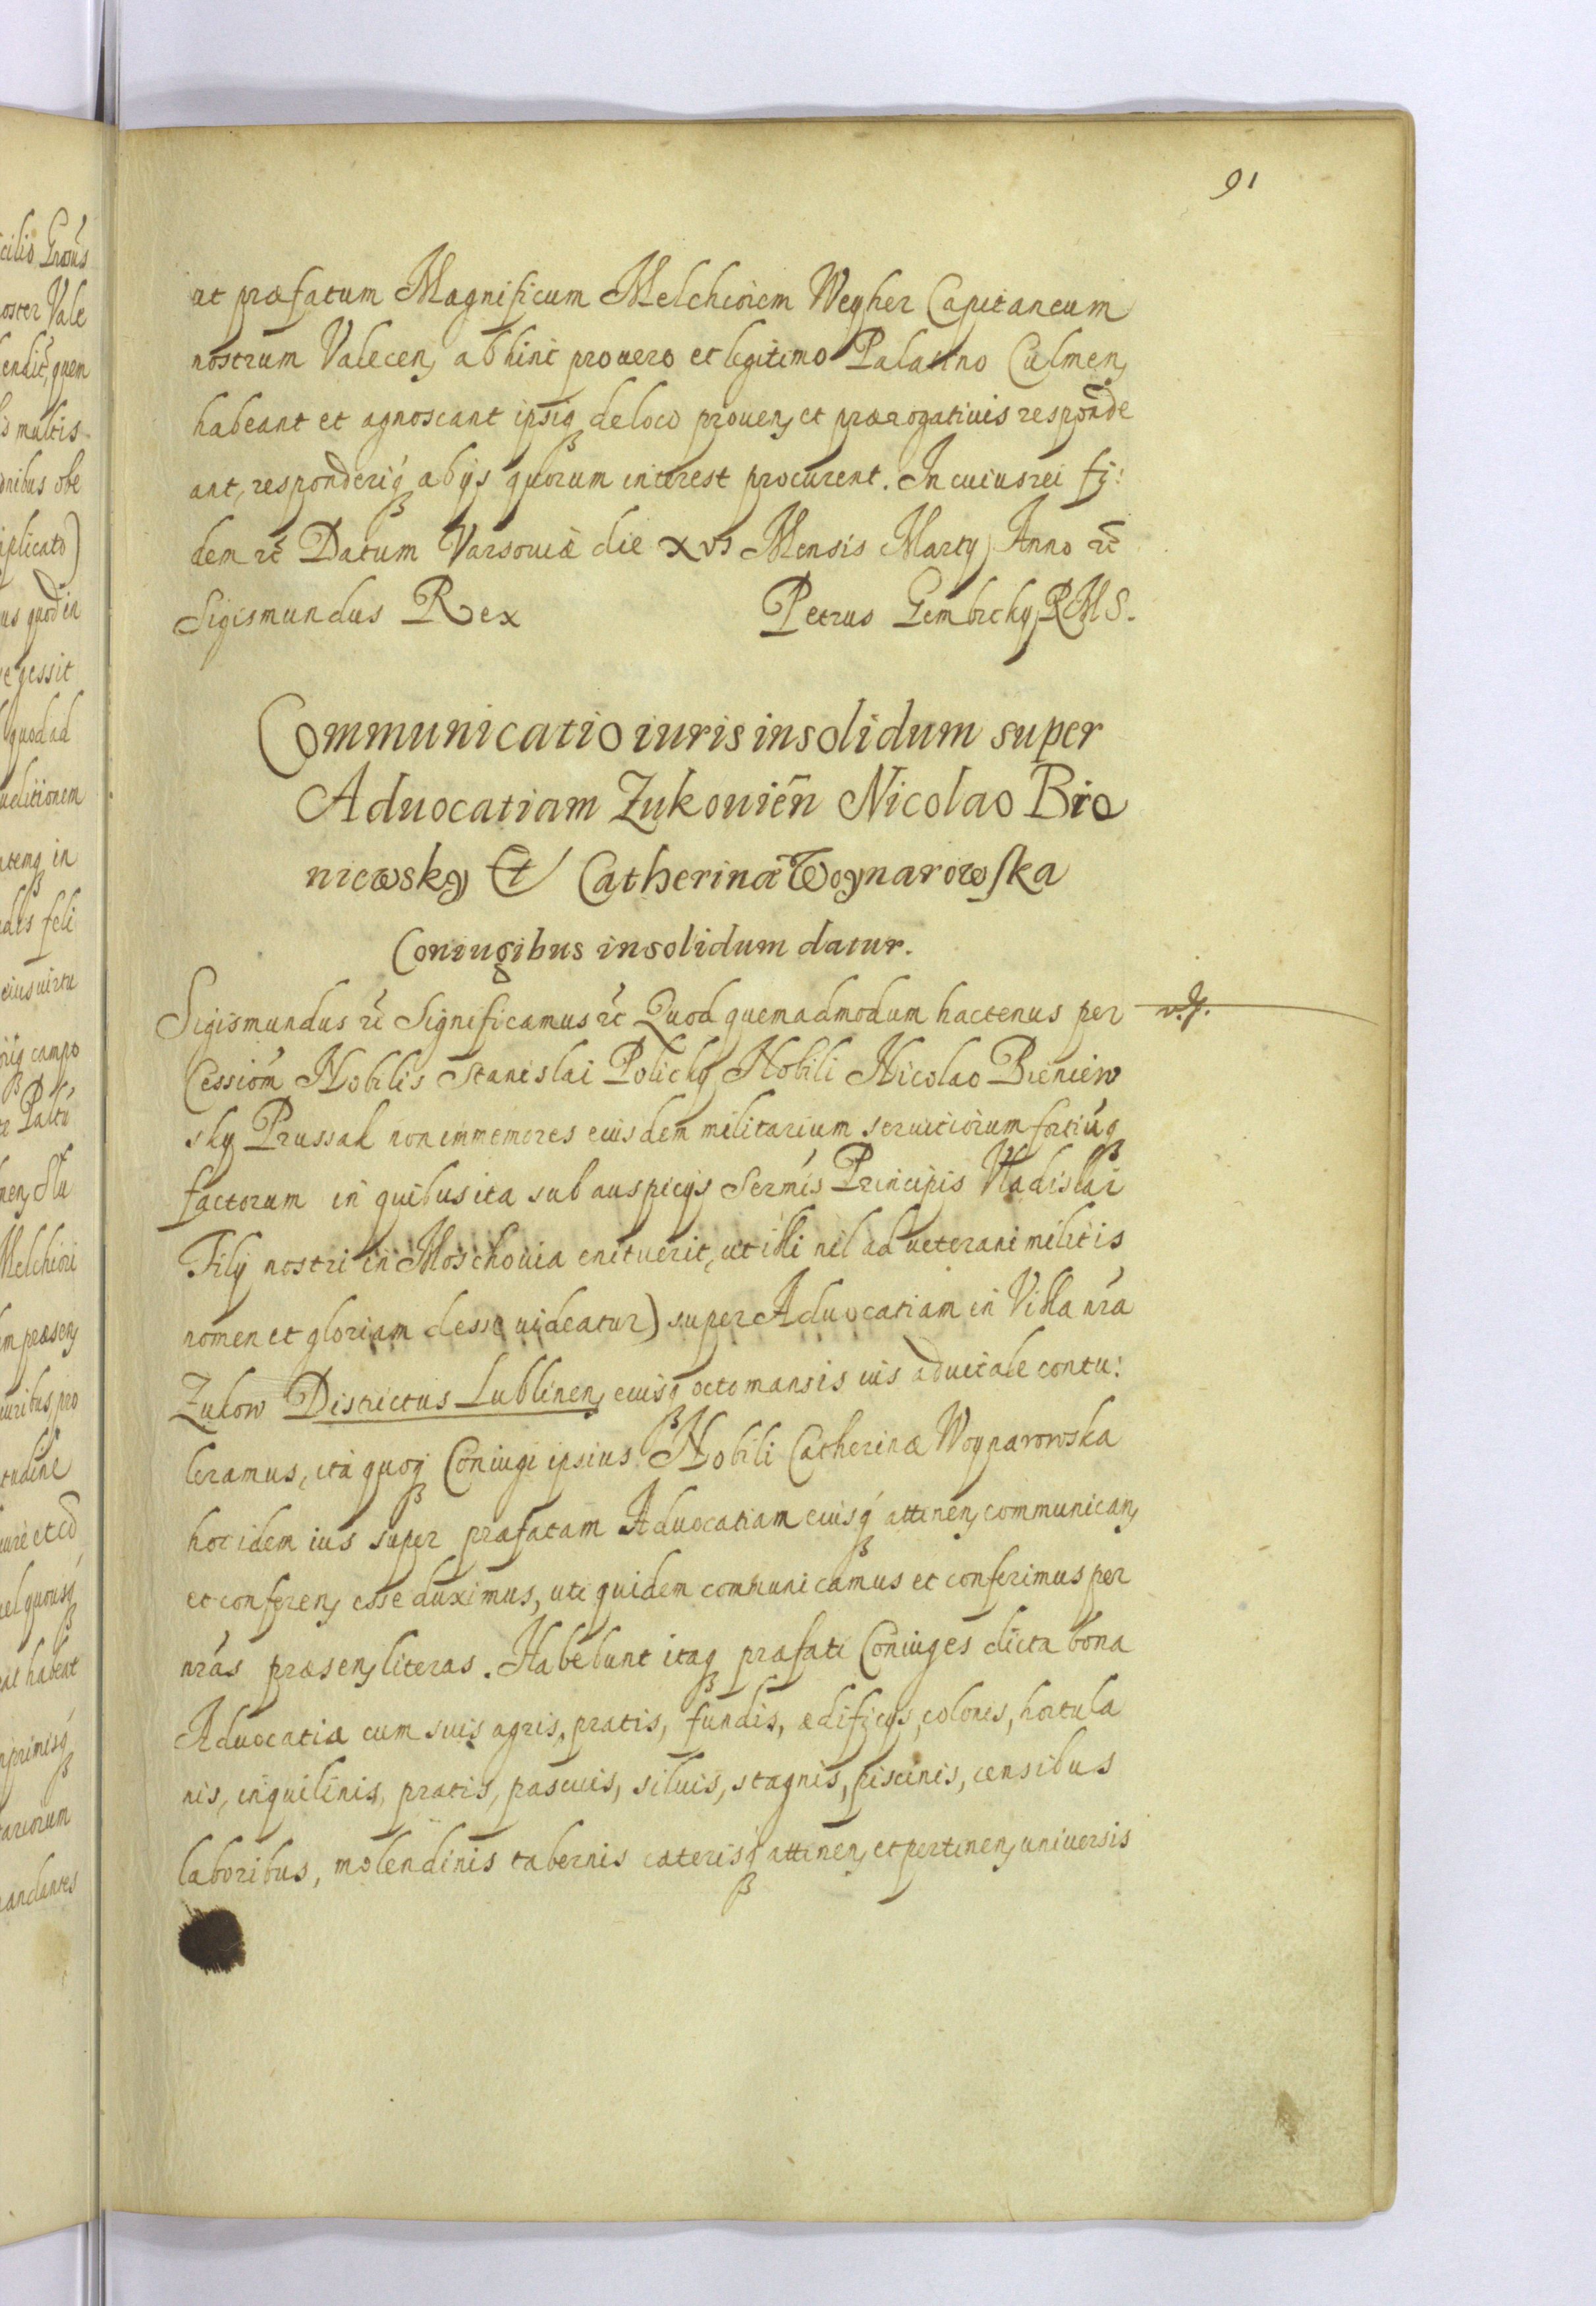 91
ut præfatum Magnificum Melchiorem Weyher Capitaneum
nostrum Valecen, abhinc pro uero et legitimo Palatino Culmen,
habeant et agnoscant ipsiq́ de loco prouen, et prærogatiuis responde
ant, responderiq́ ab ijs quorum interest procurent. In cuius rei fi:
dem etc̃ Datum Varsouiæ die XVI Mensis Martij Anno etc̃
Sigismundus Rex Petrus Gembicky R M S.
Communicatio iuris insolidum super
Aduocatiam Zukouień Nicolao Bie
niewsky Et Catherinæ Woynarowska
Coniugibus insolidum datur.
Sigismundus etc̃ Significamus etc̃ Quod quemadmodum hactenus per
Cessiom̃ Nobilis Stanislai Policky Nobili Nicolao Bieniew
sky Prussak non immemores eiusdem militarium seruitiorum fortiúq
factorum in quibus ita sub auspicijs Sermi̇́s Principis Vladislai
Filij nostri in Moschouia enituerit, ut illi nil ad ueterani militis
nomen et gloriam desse uideatur) super Aduocatiam in Villa nrá
Zukow Districtus Lublinen, eiusq́ octo mansis ius aduitale contu:
leramus, ita quoq́ Coniugi ipsius Nobili Catherinæ Woynarowska
hoc idem ius super præfatam Aduocatiam eiusq́ attinen, communican,
et conferen, esse duximus, uti quidem communicamus et conferimus per
nrás præsen, literas. Habebunt itaq́ præfati Coniuges dicta bona
Aduocatiæ cum suis agris, pratis, fundis, ædificijs, colonis, hortula
nis, inquilinis, pratis, pascuis, siluis, stagnis, piscinis, censibus
laboribus, molendinis tabernis cæterisq́ attinen, et pertinen, uniuersis